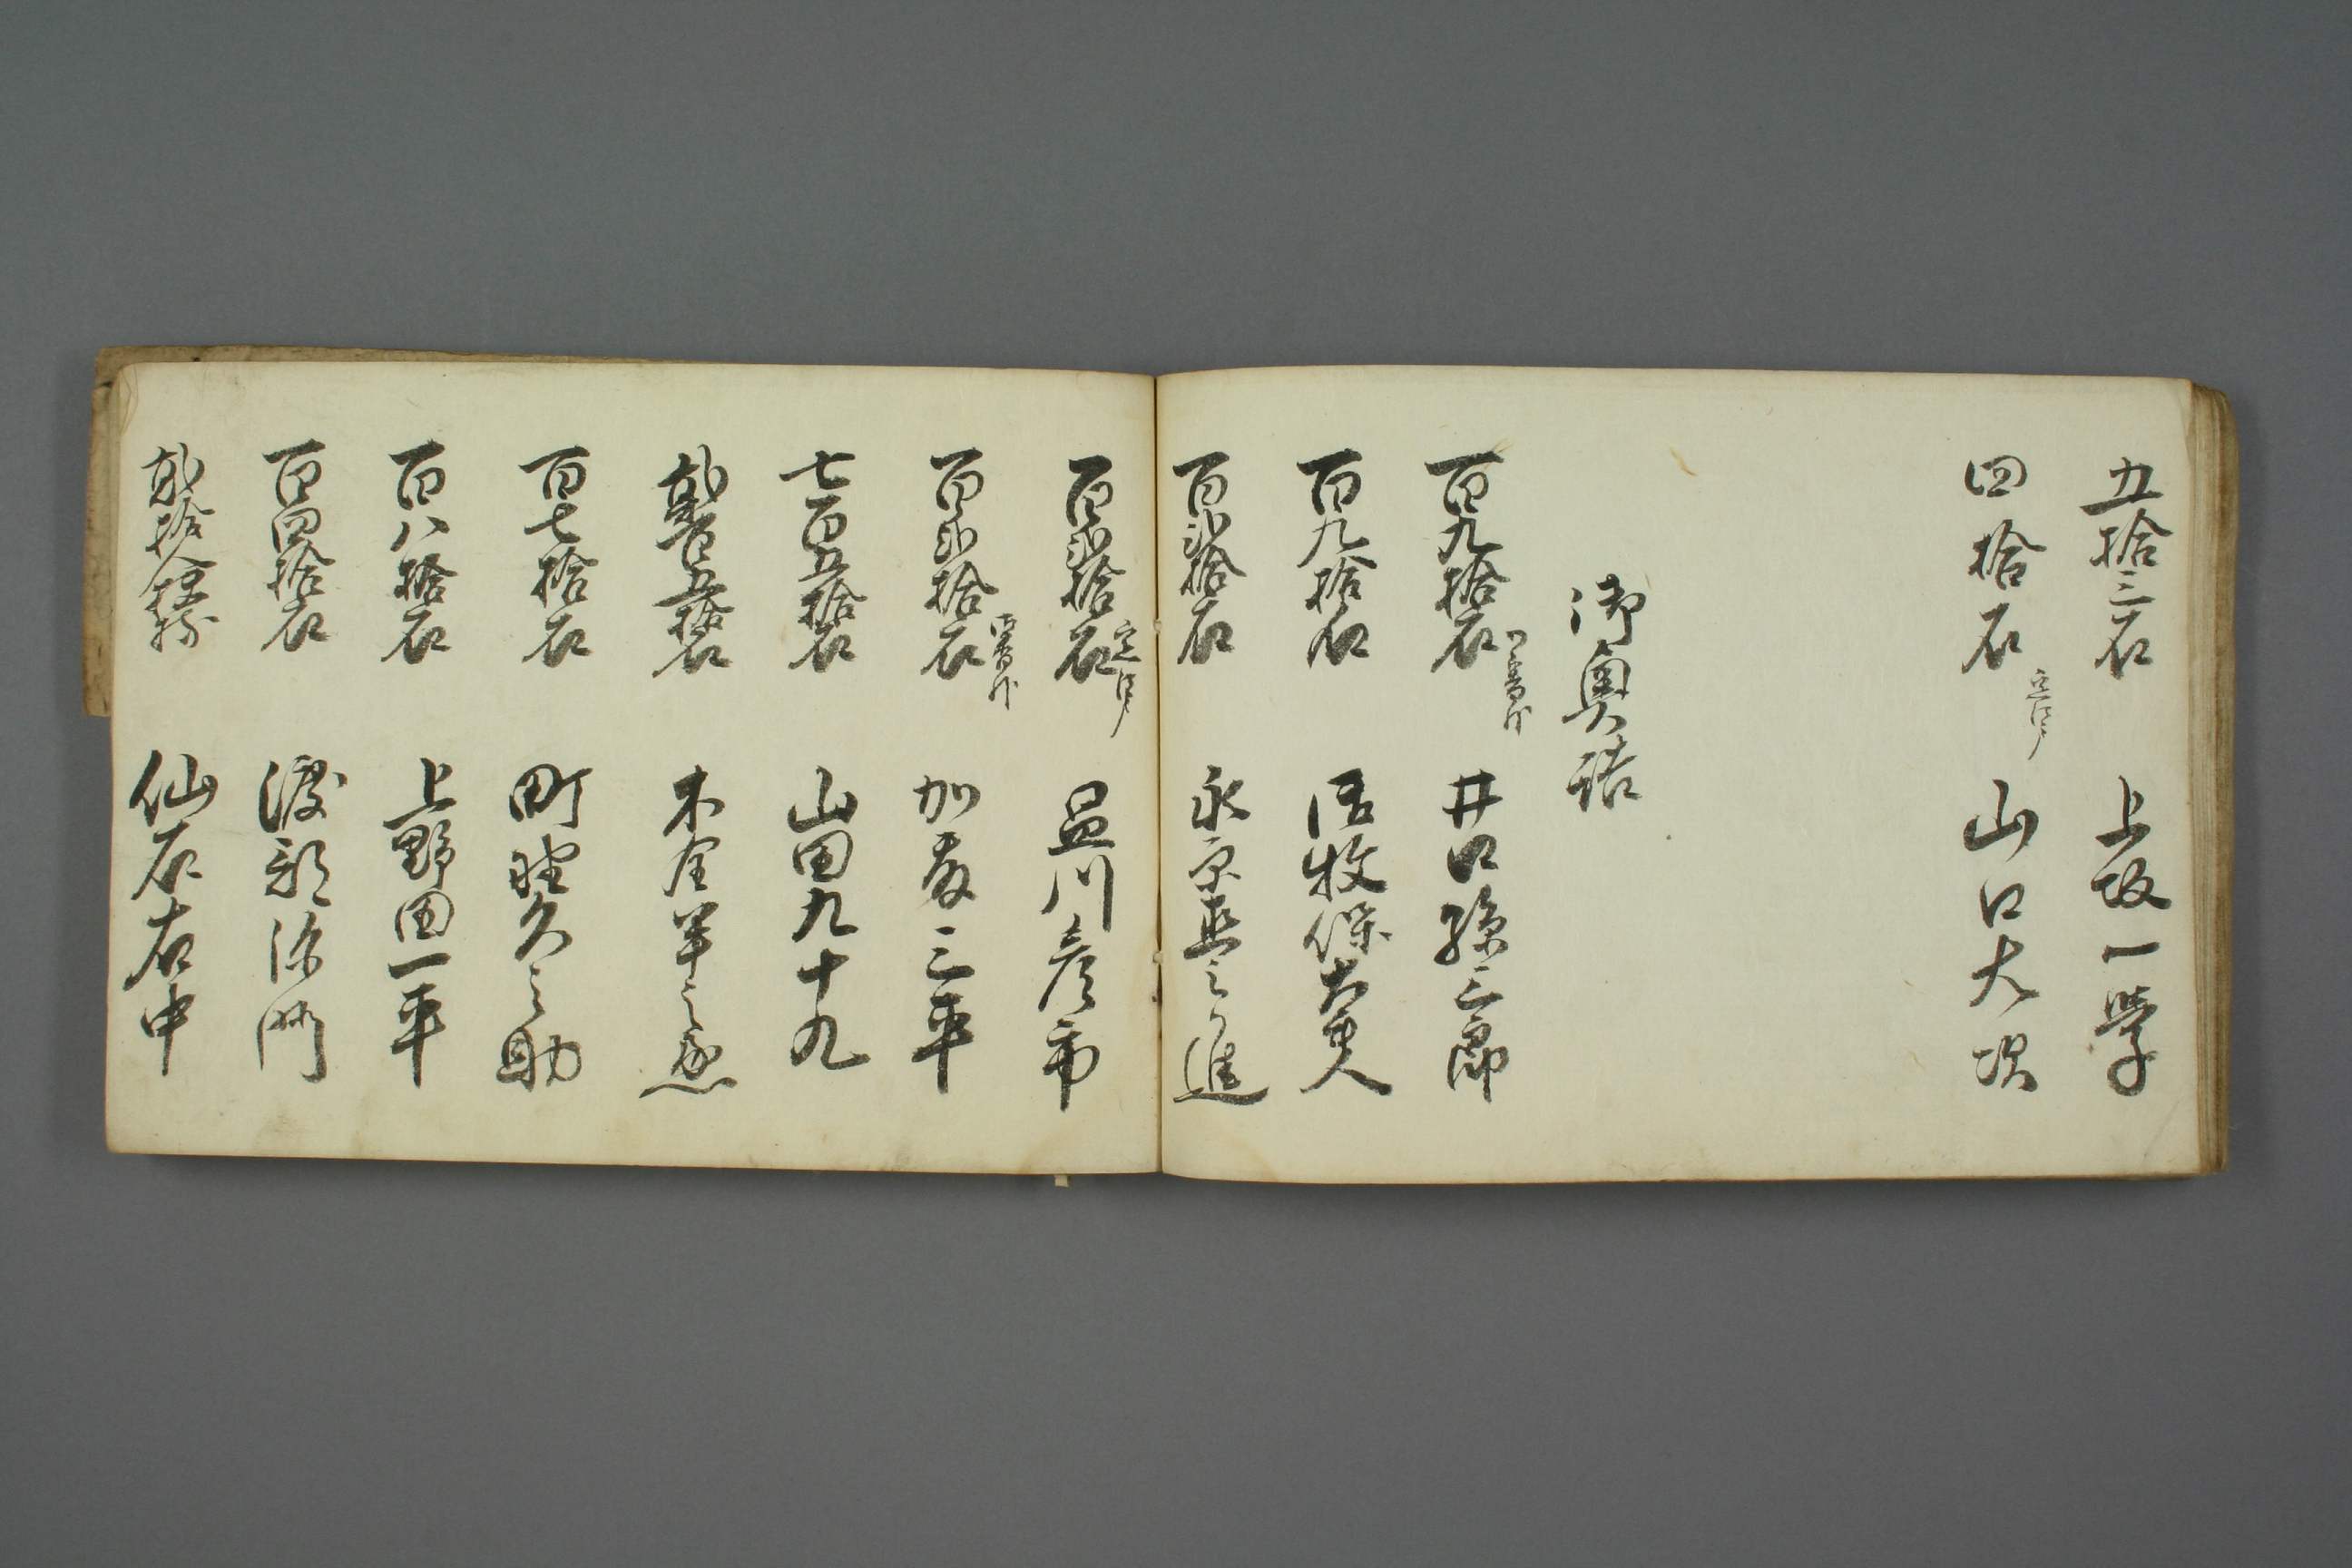 五拾三石 上坂一学
四拾石 定江戸 山口大次
御奥詰
百九拾石 井口孫三郎
百九拾石 御牧保太夫
百弐拾石 永原 之進
百弐拾石 定江戸 皿川彦市
百弐拾石 加藤三平
七百五拾石 山田九十九
弐百五拾石 半之丞
百七拾石 町野久之助
百八拾石 上野田一平
百四拾石 渡部
弐拾人扶持 仙石右中